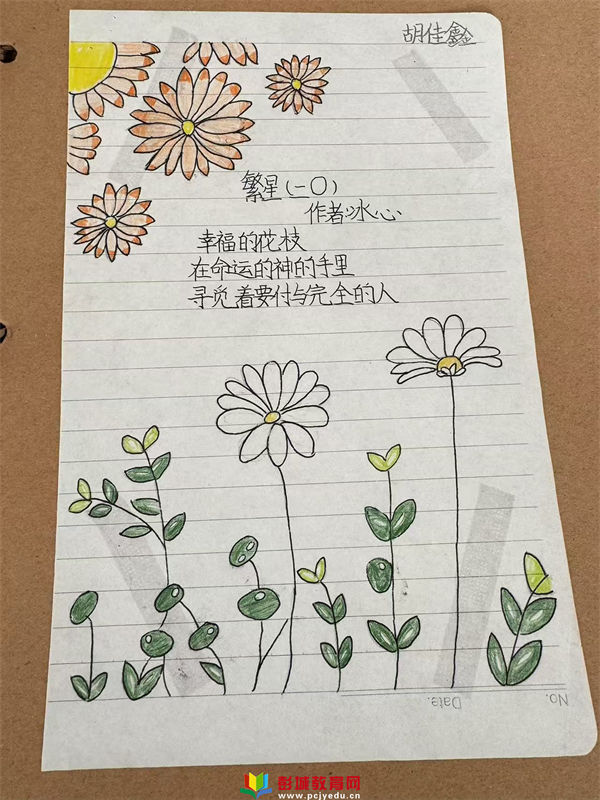 胡佳鑫
繁星(一〇)
作者:冰心
幸福的花枝
在命运的神的手里
寻觅着要付与完全的人
No.
Date.
彭城教育网
www.pcjyedu.cn